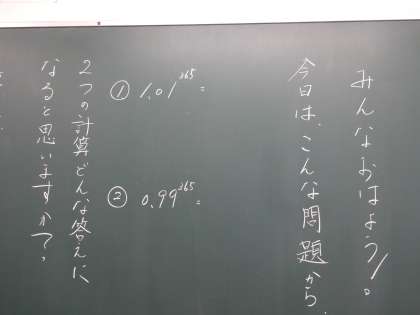 みんなおはよう!。
今日は、こんな問題から、
① 1.01³⁶⁵=
② 0.99³⁶⁵=
2つの計算どんな答えに
なると思いますか?。